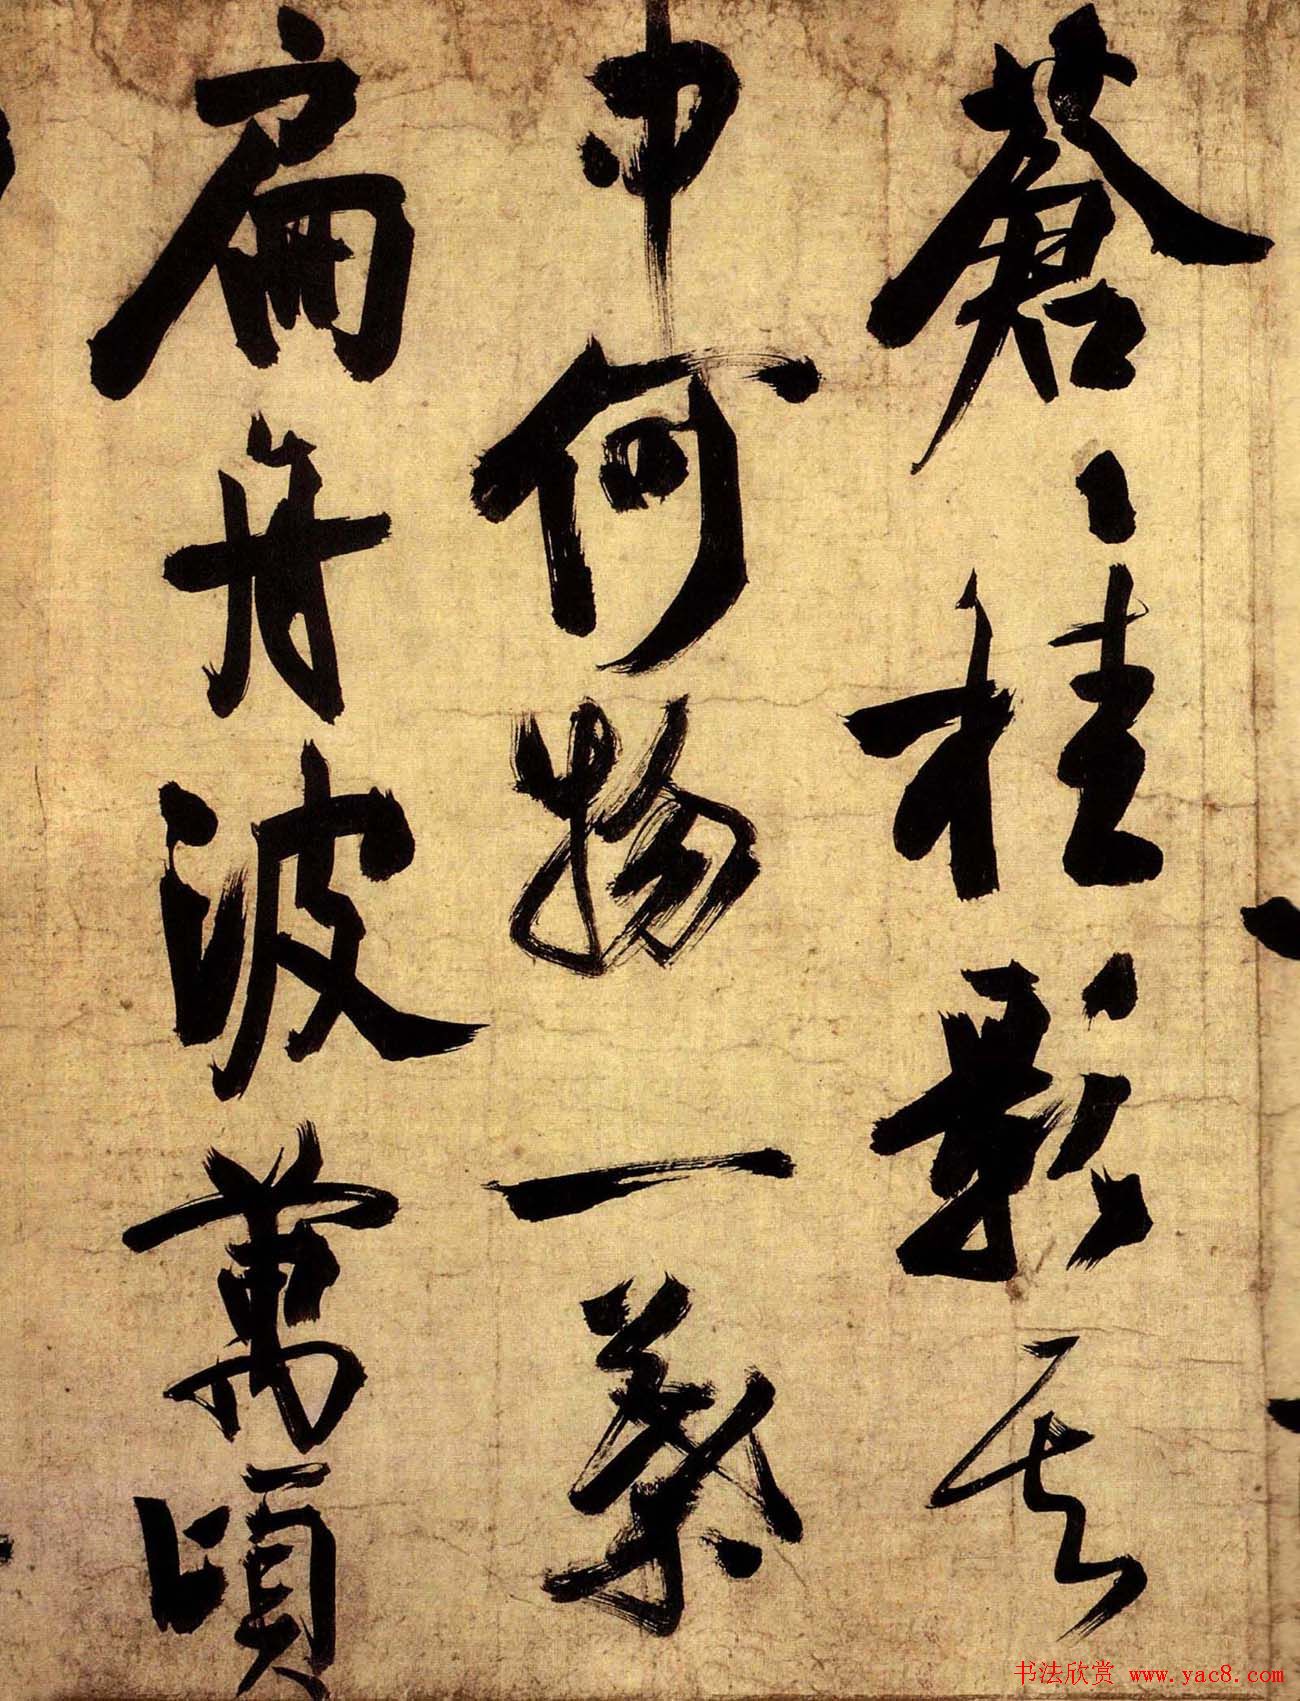 蒼〻桂影其
中何物一葉
扁舟波萬頃
书法欣赏 www.yac8.com